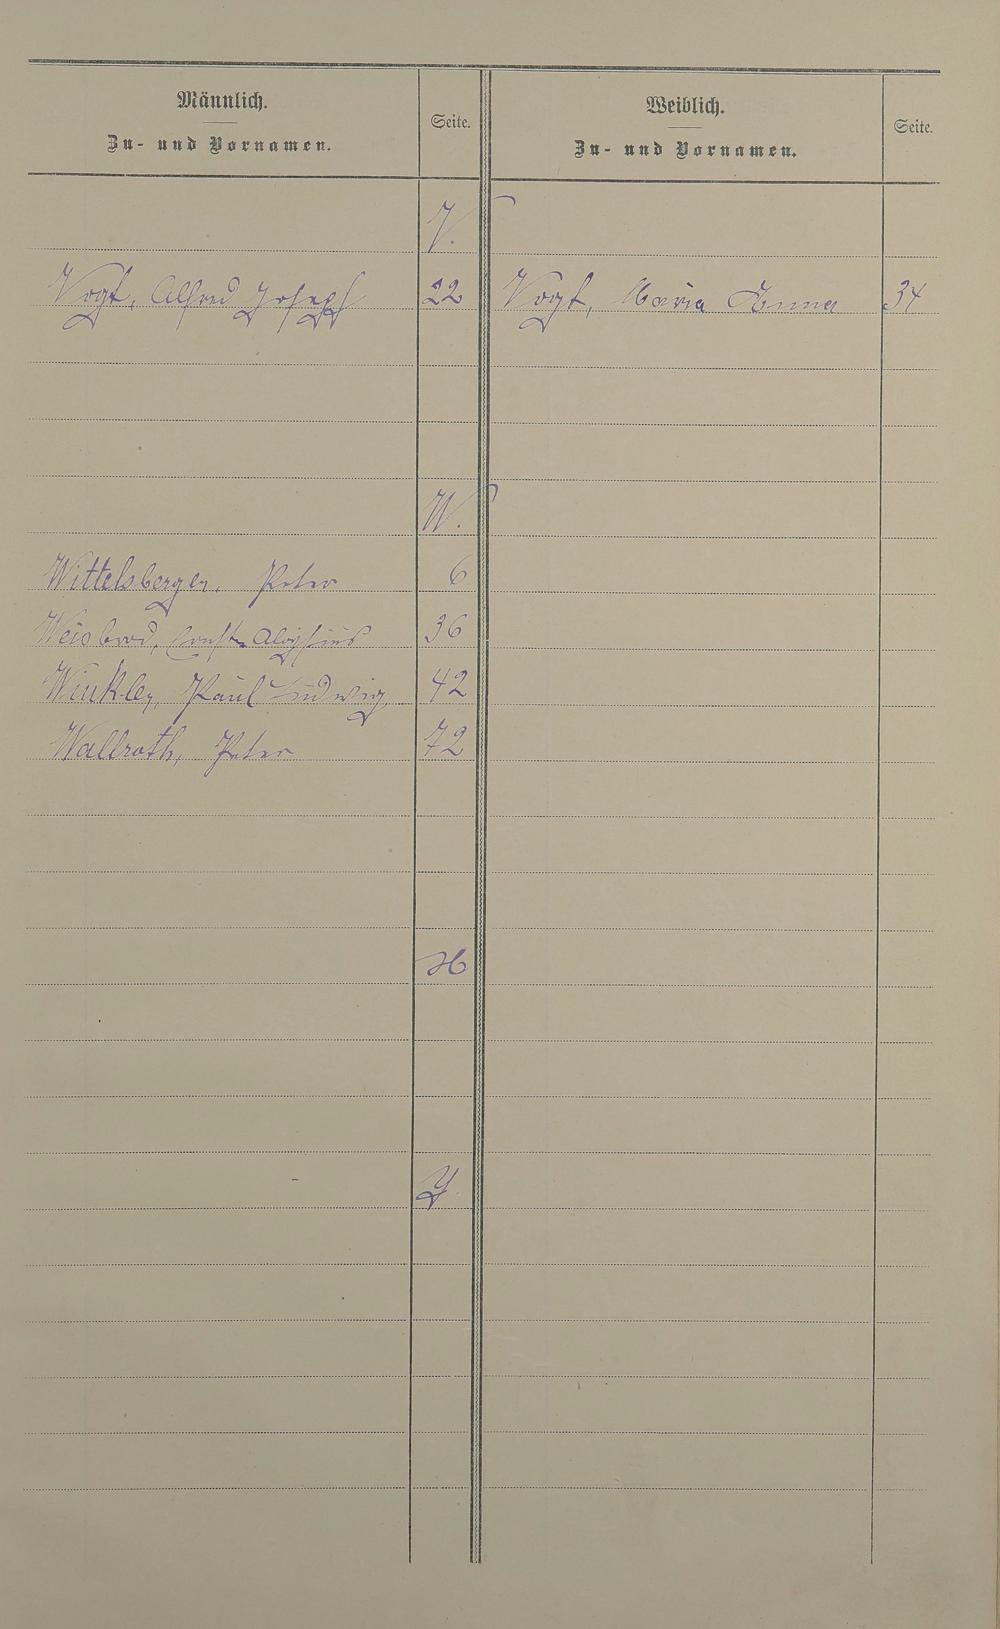 Männlich.
Zu- und Vornamen.
Seite.
Weiblich.
Zu- und Vornamen.
Seite.
V.
Vogt, Alfred Joseph 22 Vogt, Maria Anna 34
W.
Wittelsberger, Peter 6
Weisbrod, Ernst Aloysius 36
Winkler, Paul Ludwig 42
Wallroth, Peter 72
X
Y